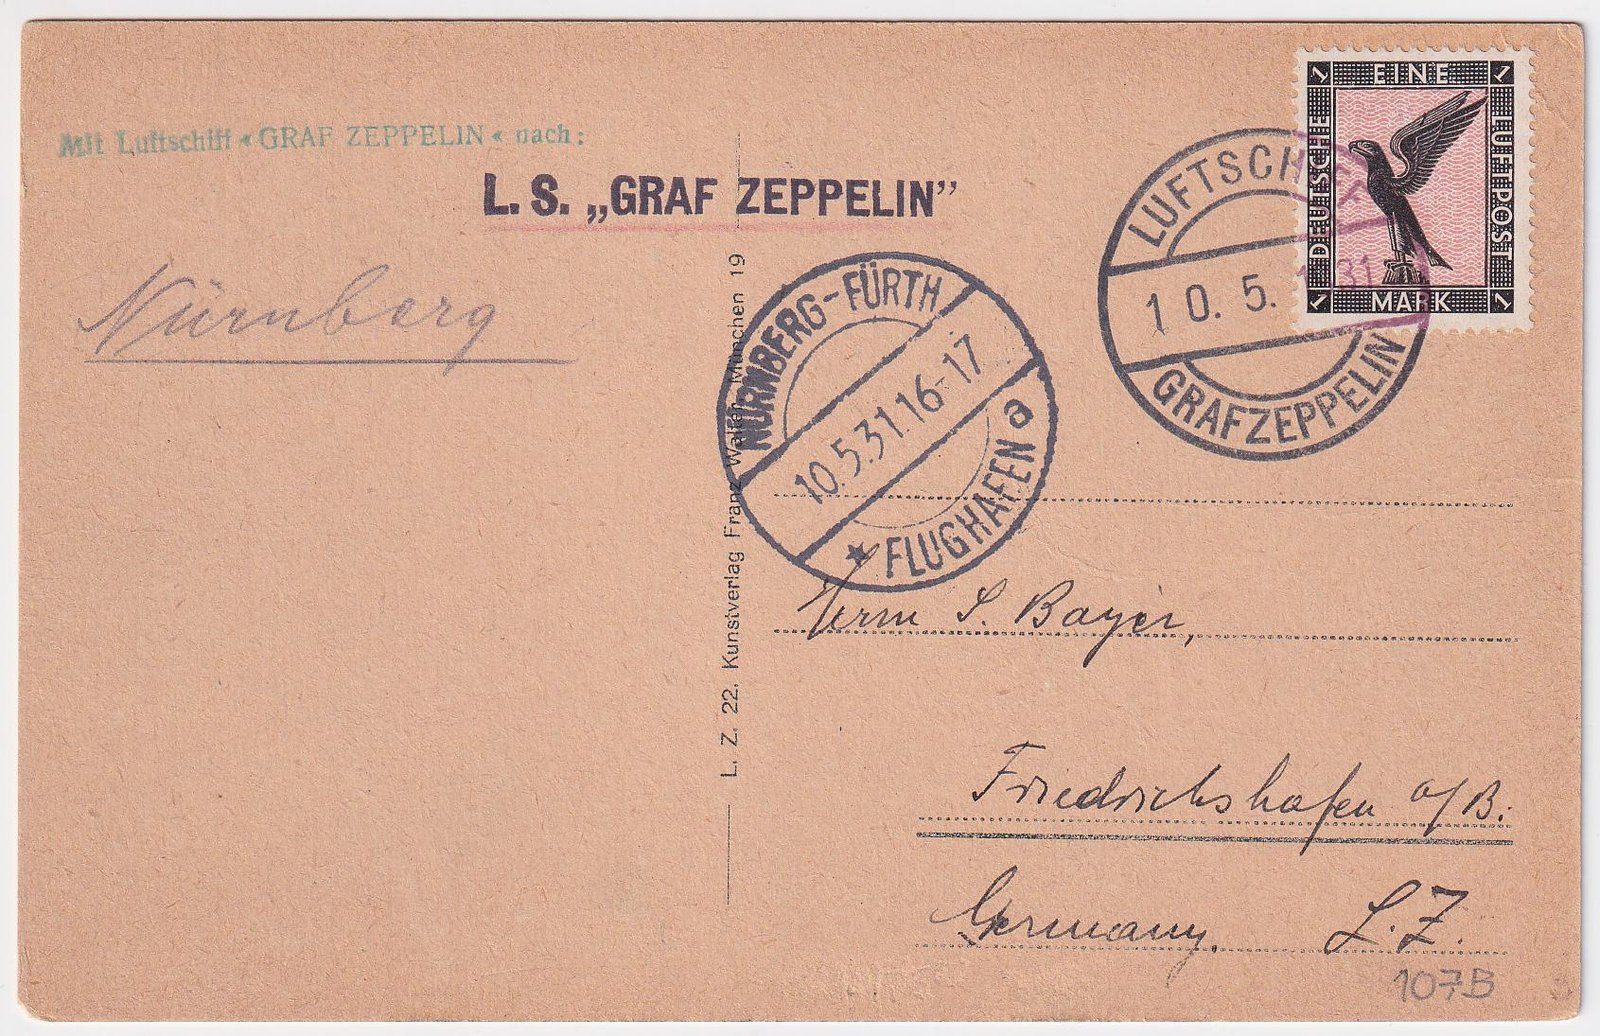 Mit Luftschiff «GRAF ZEPPELIN« nach:
L. S. „GRAF ZEPPELIN”
Nürnberg
NÜRNBERG-FÜRTH
10.5.31.16-17
* FLUGHAFEN a
LUFTSCHIFF
10. 5. 1931
GRAF ZEPPELIN
1 EINE 1
DEUTSCHE
LUFTPOST
1 MARK 1
L. Z. 22. Kunstverlag Franz Walfen München 19
Herrn S. Bayer,
Friedrichshafen a/B.
Germany. L.Z.
107B